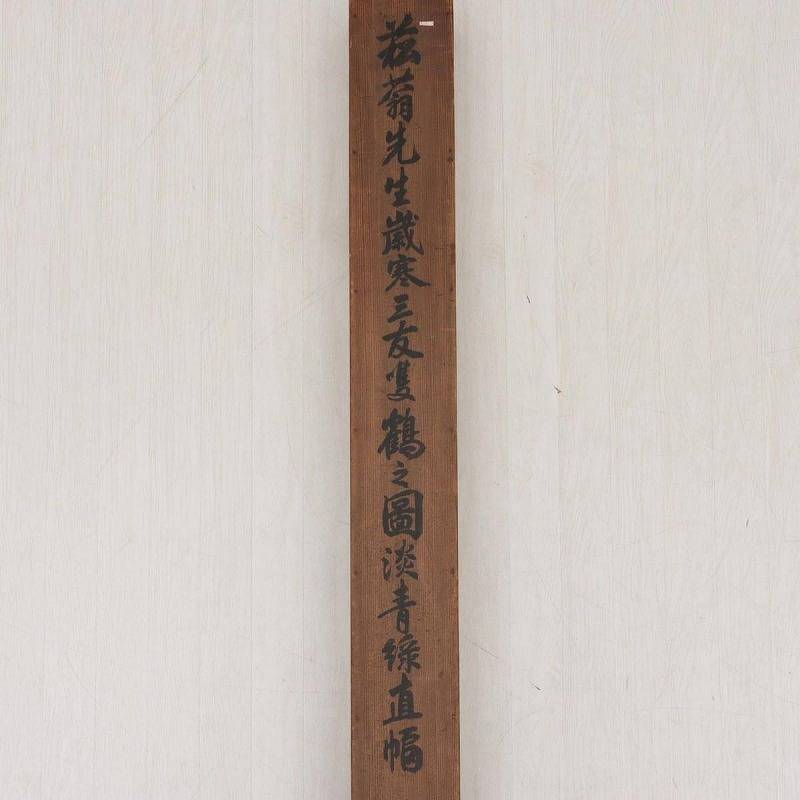 菘翁先生歳寒三友隻鶴之圖淡青緑直幅